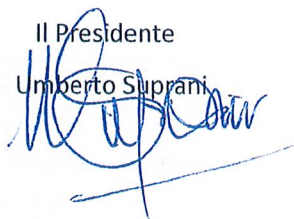 Il Presidente
Umberto Suprani